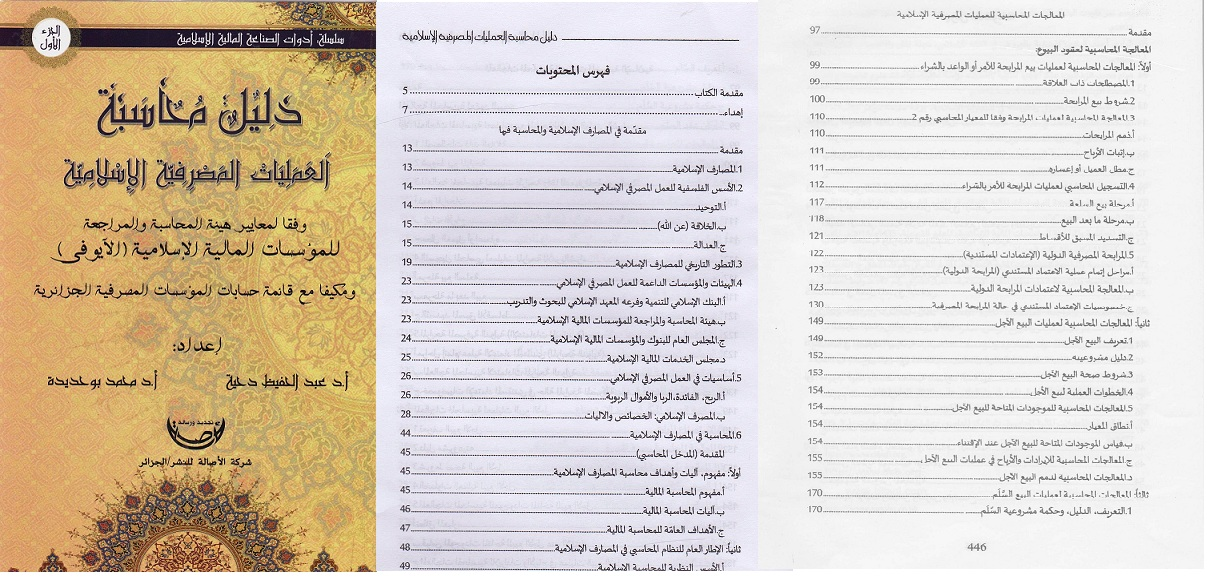 الجزء
الأول
سلسلة أدوات الصناعة المالية الإسلامية
دليل محاسبة
العمليات المصرفية الإسلامية
وفقا لمعايير هيئة المحاسبة والمراجعة
للمؤسسات المالية الإسلامية (الآيوفي)
ومكيفا مع قائمة حسابات المؤسسات المصرفية الجزائرية
إعداد:
أ.د عبد الحفيظ دحية
أ.د محمد بوحديدة
تجديد ورسالة
شركة الأصالة للنشر/الجزائر
دليل محاسبة العمليات المصرفية الإسلامية
فهرس المحتويات
مقدمة الكتاب 5
إهداء 7
مقدّمة في المصارف الإسلامية والمحاسبة فيها
مقدمة 13
1.المصارف الإسلامية 13
2.الأسس الفلسفية للعمل المصرفي الإسلامي 14
أ.التوحيد 14
ب.الخلافة (عن الله) 15
ج.العدالة 15
3.التطور التاريخي للمصارف الإسلامية 19
4.الهيئات والمؤسسات الداعمة للعمل المصرفي الإسلامي 23
أ.البنك الإسلامي للتنمية وفرعه المعهد الإسلامي للبحوث والتدريب 23
ب.هيئة المحاسبة والمراجعة للمؤسسات المالية الإسلامية 23
ج.المجلس العام للبنوك والمؤسسات المالية الإسلامية 24
د.مجلس الخدمات المالية الإسلامية 25
5.أساسيات في العمل المصرفي الإسلامي 26
أ.الربح، الفائدة،الربا والأموال الربوية 26
ب.المصرف الإسلامي: الخصائص والاليات 28
6.المحاسبة في المصارف الإسلامية 44
المقدمة (المدخل المحاسبي) 45
أولاً: مفهوم، آليات وأهداف محاسبة المصارف الإسلامية 45
أ.مفهوم المحاسبة المالية 45
ب.آليات المحاسبة المالية 46
ج.الأهداف العامّة للمحاسبة المالية 47
ثانياً: الإطار العام للنظام المحاسبي في المصارف الإسلامية 48
أ.الأسس النظرية للمحاسبة الإسلامية 49
المعالجات المحاسبية للعمليات المصرفية الإسلامية
مقدمة 97
المعالجة المحاسبية لعقود البيوع:
أولاً: المعالجات المحاسبية لعمليات بيع المرابحة للآمر أو الواعد بالشراء 99
1.المصطلحات ذات العلاقة 99
2.شروط بيع المرابحة 100
3.المعالجة المحاسبية لعمليات المرابحة وفقا للمعيار المحاسبي رقم 2 110
أ.ذمم المرابحات 110
ب.إثبات الأرباح 111
ج.مطل العميل أو إعساره 111
4.التسجيل المحاسبي لعمليات المرابحة للآمر بالشراء 112
أ.مرحلة بيع السلعة 117
ب.مرحلة ما بعد البيع 118
ج.التسديد المسبق للأقساط 121
5.المرابحة المصرفية الدولية (الإعتمادات المستندية) 122
أ.مراحل إتمام عملية الاعتماد المستندي (المرابحة الدولية) 123
ب.المعالجة المحاسبية لاعتمادات المرابحة الدولية 123
ج.خصوصيات الإعتماد المستندي في حالة المرابحة المصرفية 130
ثانياً: المعالجات المحاسبية لعمليات البيع الآجل 149
1.تعريف البيع الآجل 149
2.دليل مشروعيته 152
3.شروط صحة البيع الآجل 153
4.الخطوات العملية لبيع الآجل 154
5.المعالجات المحاسبية للموجودات المتاحة للبيع الآجل 154
أ.نطاق المعيار 154
ب.قياس الموجودات المتاحة للبيع الآجل عند الإقتناء 154
ج.المعالجات المحاسبية للإيرادات والأرباح في عمليات البيع الآجل 155
د.المعالجات المحاسبية لذمم البيع الآجل 155
ثالثاً: المعالجات المحاسبية لعمليات البيع السَّلَم 170
1.التعريف، الدليل، وحكمة مشروعية السَّلَم 170
446